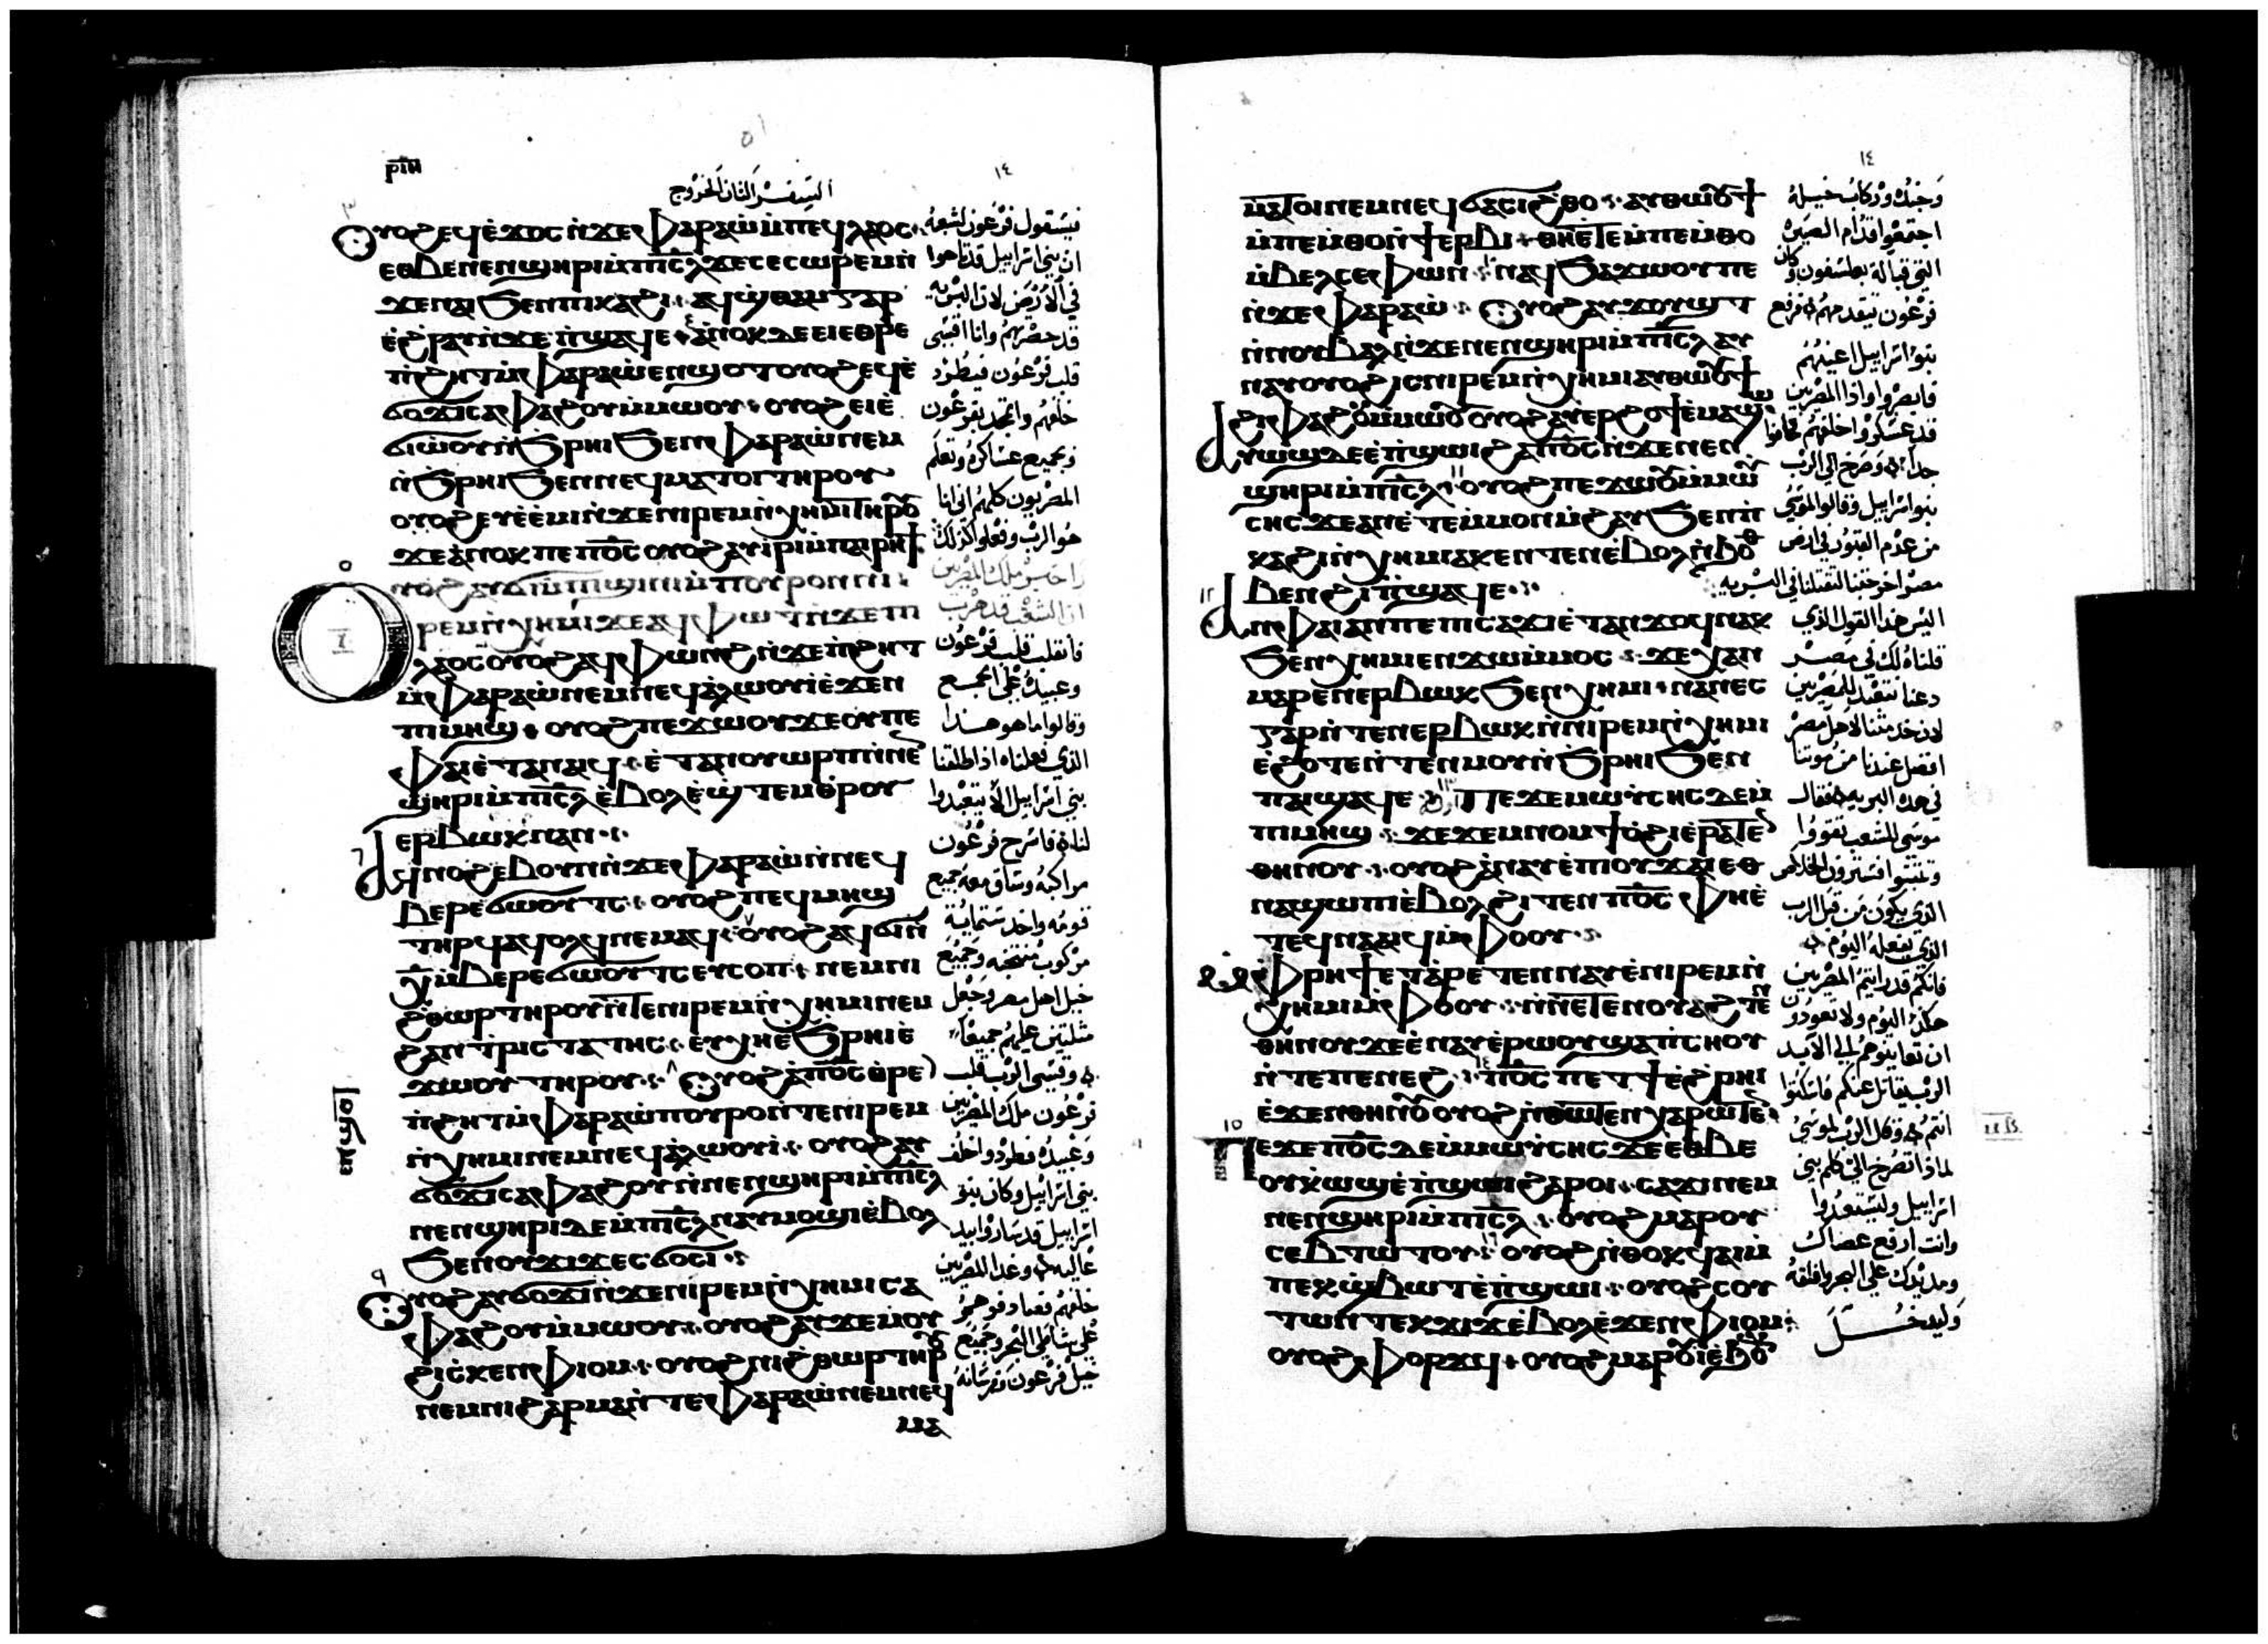 ⲣⲓⲏ
١٤
السفر الثاني الخروج
ⲟⲩⲟϩ ⲉϥⲉ̀ϫⲟⲥ ⲛ̀ϫⲉ ⲫⲁⲣⲁⲱ̀ ⲙ̀ⲡⲉϥⲗⲁⲟⲥ
ⲉⲑⲃⲉ ⲛⲉⲛϣⲏⲣⲓ ⲙ̀ⲡⲓⲥ̅ⲗ ϫⲉ ⲥⲉⲥⲱⲣⲉⲙ ⲛ̀
ϫⲉ ⲛⲁⲓ ϧⲉⲛ ⲡⲓⲕⲁϩⲓ ⲁϥϣ̀ⲑⲁⲙ ⲅⲁⲣ
ⲉ̀ⲣⲱⲟⲩ ⲛ̀ϫⲉ ⲡ̀ϣⲁϥⲉ ⲁ̀ⲛⲟⲕ ⲇⲉ ⲉⲓⲉ̀ⲑⲣⲉ
ⲡ̀ϩⲏⲧ ⲙ̀ⲫⲁⲣⲁⲱ̀ ⲉⲛϣⲟⲧ ⲟⲩⲟϩ ⲉϥⲉ̀
ϭⲟϫⲓ ⲥⲁⲫⲁϩⲟⲩ ⲙ̀ⲙⲱⲟⲩ ⲟⲩⲟϩ ⲉⲓⲉ̀
ϭⲓⲱ̀ⲟⲩ ⲛ̀ϧⲣⲏⲓ ϧⲉⲛ ⲫⲁⲣⲁⲱ̀ ⲛⲉⲙ
ⲛ̀ϧⲣⲏⲓ ϧⲉⲛ ⲛⲉϥⲙⲁⲧⲟⲓ ⲧⲏⲣⲟⲩ
ⲟⲩⲟϩ ⲉⲩⲉ̀ⲉ̀ⲙⲓ ⲛ̀ϫⲉ ⲛⲓⲣⲉⲙⲛ̀ⲭⲏⲙⲓ ⲧⲏⲣⲟⲩ
ϫⲉ ⲁ̀ⲛⲟⲕ ⲡⲉ ⲡⲟ̅ⲥ ⲟⲩⲟϩ ⲁⲩⲓ̀ⲣⲓ ⲙ̀ⲡⲁⲓⲣⲏϯ
ⲟⲩⲟϩ ⲁⲩϭⲓ ⲙ̀ⲡϣⲓⲛⲓ ⲙ̀ⲡⲟⲩⲣⲟ ⲛ̀ⲛⲓ
ⲣⲉⲙⲛ̀ⲭⲏⲙⲓ ϫⲉ ⲁϥⲫⲱⲧ ⲛ̀ϫⲉ ⲡⲓ
ⲗⲁⲟⲥ ⲟⲩⲟϩ ⲁϥⲫⲱⲛϩ ⲛ̀ϫⲉ ⲡ̀ϩⲏⲧ
ⲙ̀ⲫⲁⲣⲁⲱ̀ ⲛⲉⲙ ⲛⲉϥⲁ̀ⲗⲱⲟⲩⲓ̀ ⲉ̀ϫⲉⲛ
ⲡⲓⲙⲏϣ ⲟⲩⲟϩ ⲡⲉϫⲱⲟⲩ ϫⲉ ⲟⲩ ⲡⲉ
ⲫⲁⲓ ⲉ̀ⲧⲁⲛⲁⲓϥ ⲉ̀ⲧⲁⲛⲟⲩⲱⲣⲡ ⲛ̀ⲛⲉⲛ
ϣⲏⲣⲓ ⲙ̀ⲡⲓⲥ̅ⲗ ⲉ̀ⲃⲟⲗ ⲉ̀ϣⲧⲉⲙⲑⲣⲟⲩ
ⲉⲣⲃⲱⲕ ⲛⲁⲛ
ⲁϥⲛⲟϩⲉⲃ ⲟⲩⲛ ⲛ̀ϫⲉ ⲫⲁⲣⲁⲱ̀ ⲛ̀ⲛⲉϥ
ⲃⲉⲣⲉϭⲱⲟⲩⲧⲥ ⲟⲩⲟϩ ⲡⲉϥⲙⲏϣ
ⲧⲏⲣϥ ⲁϥⲟⲗϥ ⲛⲉⲙⲁϥ ⲟⲩⲟϩ ⲁϥϭⲓ ⲛ̀
ⲭ̅ ⲙ̀ⲃⲉⲣⲉϭⲱⲟⲩⲧⲥ ⲉⲩⲥⲟⲧⲡ ⲛⲉⲙ ⲛⲓ
ϩ̀ⲑⲱⲣ ⲧⲏⲣⲟⲩ ⲛ̀ⲧⲉ ⲛⲓⲣⲉⲙⲛ̀ⲭⲏⲙⲓ ⲛⲉⲙ
ϩⲁⲛⲧⲣⲓⲥⲧⲁⲧⲏⲥ ⲉⲩⲭⲏ ⲉ̀ϧⲣⲏⲓ ⲉ̀
ϫⲱⲟⲩ ⲧⲏⲣⲟⲩ ⲟⲩⲟϩ ⲁ̀ ⲡⲟ̅ⲥ ⲑⲣⲉ
ⲡ̀ϩⲏⲧ ⲙ̀ⲫⲁⲣⲁⲱ̀ ⲡⲟⲩⲣⲟ ⲛ̀ⲧⲉ ⲛⲓⲣⲉⲙ
ⲛ̀ⲭⲏⲙⲓ ⲛⲉⲙ ⲛⲉϥⲁ̀ⲗⲱⲟⲩⲓ̀ ⲟⲩⲟϩ ⲁⲩ
ϭⲟϫⲓ ⲥⲁⲫⲁϩⲟⲩ ⲛ̀ⲛⲉⲛϣⲏⲣⲓ ⲙ̀ⲡⲓⲥ̅ⲗ
ⲛⲉⲛϣⲏⲣⲓ ⲇⲉ ⲙ̀ⲡⲓⲥ̅ⲗ ⲛⲁⲩⲙⲟϣⲓ ⲉ̀ⲃⲟⲗ
ϧⲉⲛ ⲟⲩϫⲓϫ ⲉⲥϭⲟⲥⲓ
ⲟⲩⲟϩ ⲁⲩϭⲟϫⲓ ⲛ̀ϫⲉ ⲛⲓⲣⲉⲙⲛ̀ⲭⲏⲙⲓ ⲥⲁ
ⲫⲁϩⲟⲩ ⲙ̀ⲙⲱⲟⲩ ⲟⲩⲟϩ ⲁⲩϫⲉⲙⲟⲩ
ϩⲓⲥⲕⲉⲛ ⲫⲓⲟⲙ ⲟⲩⲟϩ ⲛⲓϩ̀ⲑⲱⲣ ⲧⲏⲣⲟⲩ
ⲛⲉⲙ ⲛⲓϩⲁⲣⲙⲁ ⲛ̀ⲧⲉ ⲫⲁⲣⲁⲱ̀ ⲛⲉⲙ ⲛⲉϥ
ⲙⲁ
فيستقول فرعون لشعبه
ان بني اسراييل قد تاهوا
في الارض لان البريه
قد حصرتهم وانا اقسى
قلب فرعون فيطرد
خلفهم واتمجد بفرعون
وبجميع عساكره وتعلم
المصريون كلهم اني انا
هو الرب وفعلوا كذلك
ملك المصريين
ان الشعب قد هرب
فانقلب قلب فرعون
وعبيده على الجمع
وقالوا ما هو هذا
الذي فعلناه اذ اطلقنا
بني اسراييل الا يتعبدوا
لنا فاسرج فرعون
مراكبه وساق معه جميع
قومه واخذ ستماية
مركوب منتخبه وجميع
خيل اهل مصر وجعل
عليهم جميعا
وقسى الرب قلب
فرعون ملك المصريين
وعبيده فطردوا خلف
بني اسراييل وكان بنو
اسراييل قد ساروا بيد
عاليه وعدا المصريين
خلفهم فصادفوهم
على شاطى البحر وجميع
خيل فرعون وفرسانه
١٤
ⲙⲁⲧⲟⲓ ⲛⲉⲙ ⲛⲉϥϭⲁⲥⲓϩ̀ⲑⲟ ⲁⲩⲑⲱⲟⲩϯ
ⲙ̀ⲡⲉⲙ̀ⲑⲟ ⲛ̀ϯⲉⲣⲃⲓ ⲑⲏ ⲉ̀ⲧⲉ ⲙ̀ⲡⲉⲙ̀ⲑⲟ
ⲙ̀ⲃⲉⲗⲥⲉⲫⲱⲛ ⲛⲁϥϧⲁϫⲱⲟⲩ ⲡⲉ
ⲛ̀ϫⲉ ⲫⲁⲣⲁⲱ̀ ⲟⲩⲟϩ ⲁⲩϫⲟⲩϣⲧ
ⲛ̀ⲛⲟⲩⲃⲁⲗ ⲛ̀ϫⲉ ⲛⲉⲛϣⲏⲣⲓ ⲙ̀ⲡⲓⲥ̅ⲗ ⲁⲩ
ⲛⲁⲩ ⲟⲩⲟϩ ⲓⲥ ⲛⲓⲣⲉⲙⲛ̀ⲭⲏⲙⲓ ⲁⲩⲑⲱⲟⲩϯ
ϩⲓ ⲫⲁϩⲟⲩ ⲙ̀ⲙⲱⲟⲩ ⲟⲩⲟϩ ⲁⲩⲉⲣϩⲟϯ ⲉ̀ⲙⲁϣⲱ
ⲁⲩⲱϣ ⲇⲉ ⲉ̀ⲡ̀ϣⲱⲓ ϩⲁ ⲡⲟ̅ⲥ ⲛ̀ϫⲉ ⲛⲉⲛ
ϣⲏⲣⲓ ⲙ̀ⲡⲓⲥ̅ⲗ ⲟⲩⲟϩ ⲡⲉϫⲱⲟⲩ ⲙ̀ⲙⲱⲩ̀
ⲥⲏⲥ ϫⲉ ⲁⲛ ⲉ̀ⲧⲉ ⲙ̀ⲙⲟⲛ ⲙ̀ϩⲁⲩ ϧⲉⲛ ⲡ̀
ⲕⲁϩⲓ ⲛ̀ⲭⲏⲙⲓ ⲁⲕⲉⲛⲧⲉⲛ ⲉ̀ⲃⲟⲗ ⲉ̀ϧⲟⲑ
ⲃⲉⲛ ϩⲓ ⲡ̀ϣⲁϥⲉ
ⲁⲛ ⲫⲁⲓ ⲁⲛ ⲡⲉ ⲡⲓⲥⲁϫⲓ ⲉ̀ⲧⲁⲛϫⲟϥ ⲛⲁⲕ
ϧⲉⲛ ⲭⲏⲙⲓ ⲉⲛϫⲱ ⲙ̀ⲙⲟⲥ ϫⲉ ⲭⲁⲛ
ⲙⲁⲣⲉⲛⲉⲣⲃⲱⲕ ϧⲉⲛ ⲭⲏⲙⲓ ⲛⲁⲛⲉⲥ
ⲅⲁⲣ ⲛ̀ⲧⲉⲛⲉⲣⲃⲱⲕ ⲛ̀ⲛⲓⲣⲉⲙⲛ̀ⲭⲏⲙⲓ
ⲉ̀ϩⲟⲧⲉ ⲛ̀ⲧⲉⲛⲙⲟⲩ ⲛ̀ϧⲣⲏⲓ ϧⲉⲛ
ⲡⲁⲓϣⲁϥⲉ ⲡⲉϫⲉ ⲙⲱⲩ̀ⲥⲏⲥ ⲇⲉ ⲙ̀
ⲡⲓⲙⲏϣ ϫⲉ ϫⲉⲙⲛⲟⲙϯ ⲟ̀ϩⲓ ⲉ̀ⲣⲁⲧⲉⲛ
ⲑⲏⲛⲟⲩ ⲟⲩⲟϩ ⲁ̀ⲛⲁⲩ ⲉ̀ⲡⲓⲟⲩϫⲁⲓ ⲉⲑ
ⲛⲁϣⲱⲡⲓ ⲉ̀ⲃⲟⲗ ϩⲓⲧⲉⲛ ⲡⲟ̅ⲥ ⲫⲏ ⲉ̀
ⲧⲉϥⲛⲁⲁⲓϥ ⲙ̀ⲫⲟⲟⲩ
ⲙ̀ⲫⲣⲏϯ ⲉ̀ⲧⲁⲣⲉⲧⲉⲛⲛⲁⲩ ⲉ̀ⲛⲓⲣⲉⲙⲛ̀
ⲭⲏⲙⲓ ⲙ̀ⲫⲟⲟⲩ ⲛ̀ⲛⲉⲧⲉⲛⲟⲩⲁϩⲧⲉⲛ
ⲑⲏⲛⲟⲩ ϫⲉ ⲉ̀ⲛⲁⲩ ⲉ̀ⲣⲱⲟⲩ ϣⲁ ⲡ̀ⲥⲏⲟⲩ
ⲛ̀ⲧⲉ ⲡⲉⲛⲉϩ ⲡⲟ̅ⲥ ⲡⲉⲧϯ ⲉ̀ϩⲣⲏⲓ
ⲉ̀ϫⲉⲛ ⲑⲏⲛⲟⲩ ⲟⲩⲟϩ ⲛ̀ⲑⲱⲧⲉⲛ ⲭⲁⲣⲱⲧⲉⲛ
ⲡⲉϫⲉ ⲡⲟ̅ⲥ ⲇⲉ ⲙ̀ⲙⲱⲩ̀ⲥⲏⲥ ϫⲉ ⲉⲑⲃⲉ
ⲟⲩ ⲕⲱϣ ⲉ̀ⲡ̀ϣⲱⲓ ϩⲁⲣⲟⲓ ⲥⲁϫⲓ ⲛⲉⲙ
ⲛⲉⲛϣⲏⲣⲓ ⲙ̀ⲡⲓⲥ̅ⲗ ⲟⲩⲟϩ ⲙⲁⲣⲟⲩ
ⲥⲉⲃⲧⲱⲧⲟⲩ ⲟⲩⲟϩ ⲛ̀ⲑⲟⲕ ϥⲁⲓ ⲙ̀
ⲡⲉⲕϣ̀ⲃⲱⲧ ⲉ̀ⲡ̀ϣⲱⲓ ⲟⲩⲟϩ ⲥⲟⲩ
ⲧⲱⲛ ⲧⲉⲕϫⲓϫ ⲉ̀ⲃⲟⲗ ⲉ̀ϫⲉⲛ ⲫⲓⲟⲙ
ⲟⲩⲟϩ ⲫⲟⲣϫϥ ⲟⲩⲟϩ ⲙⲁⲣⲟⲩⲓ̀ ⲉ̀ϧⲟⲩⲛ
وجنده وركاب خيله
اجتمعوا قدام الصيرة
التي قبالة بعلسفون وكان
فرعون يتقدمهم فرفع
بنو اسراييل اعينهم
فابصروا واذا المصريين
قد عسكروا خلفهم فخافوا
جدا وصرخ الى الرب
بنو اسراييل وقالوا لموسى
من عدم القبور في ارض
مصر اخرجتنا لتقتلنا في البريه
اليس هذا القول الذي
قلناه لك في مصر
دعنا نتعبد للمصريين
لان خدمتنا لاهل مصر
افضل عندنا من موتنا
في هذه البريه فقال
موسى للشعب تقووا
وتثبتوا فسترون الخلاص
الذي يكون من قبل الرب
الذي يفعله اليوم
فانكم قد رايتم المصريين
هكذا اليوم ولا تعودون
ان تعاينوهم الى الابد
الرب يقاتل عنكم فاسكتوا
انتم وقال الرب لموسى
لماذا تصرخ الي كلم بني
اسراييل وليستعدوا
وانت ارفع عصاك
ومد يدك على البحر وافلقه
وليدخل